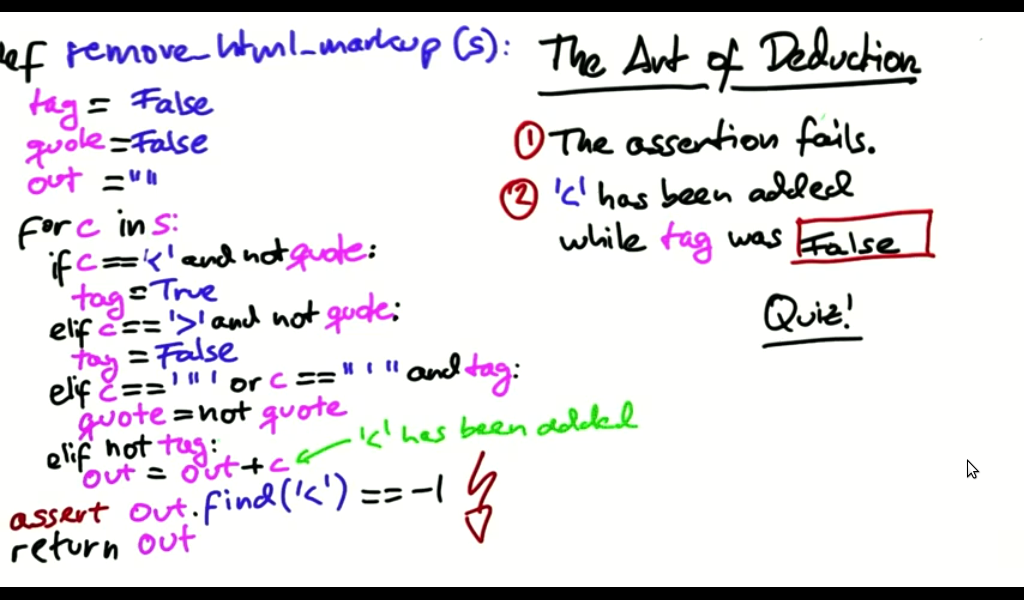 ef remove_html_markup (s):
tag = False
quote = False
out = ""
for c in s:
if c == '<' and not quote:
tag = True
elif c == '>' and not quote:
tag = False
elif c == '"' or c == "'" and tag:
quote = not quote
elif not tag:
out = out + c
'<' has been added
assert out.find('<') == -1
return out
The Art of Deduction
① The assertion fails.
② '<' has been added
while tag was False
Quiz!